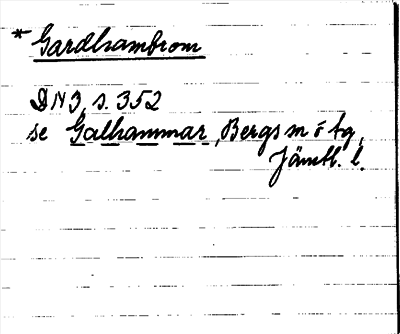 * Gardhambrom
DN 3, s. 352
se Galhammar, Bergs sn o tg,
Jämtl. l.